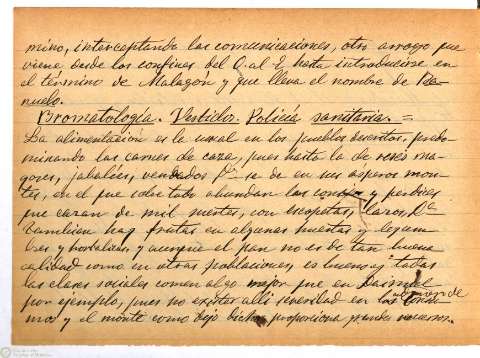 mino, interceptando las comunicaciones, otro arroyo que
viene desde los confines del O. al E. hasta introducirse en
el término de Malagón y que lleva el nombre de Ba-
ñuelo.
Bromatología. Vestidos. Policía sanitaria. =
La alimentación es la usual en los pueblos descritos, predo-
minando las carnes de caza, pues hasta la de reses ma-
yores, jabalíes, venados &ª se da en sus ásperos mon-
tes, en el que sobre todo abundan los conejos y perdices
que cazan de mil suertes, con escopetas, lazos, &ª
También hay frutas en algunas huertas y legum-
bres y hortalizas, y aunque el pan no es de tan buena
calidad como en otras poblaciones, es bueno y todas
las clases sociales comen algo mejor que en Daimiel
por ejemplo, pues no existe allí severidad en los
y el monte como dejo dicho proporciona